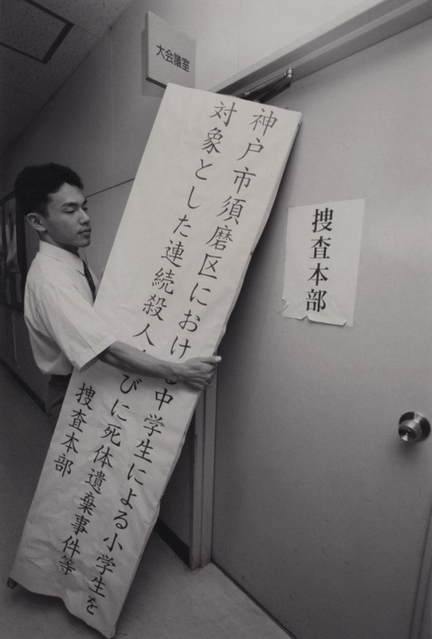 大会議室
神戸市須磨区における中学生による小学生を
対象とした連続殺人びに死体遺棄事件等
捜査本部
捜査本部